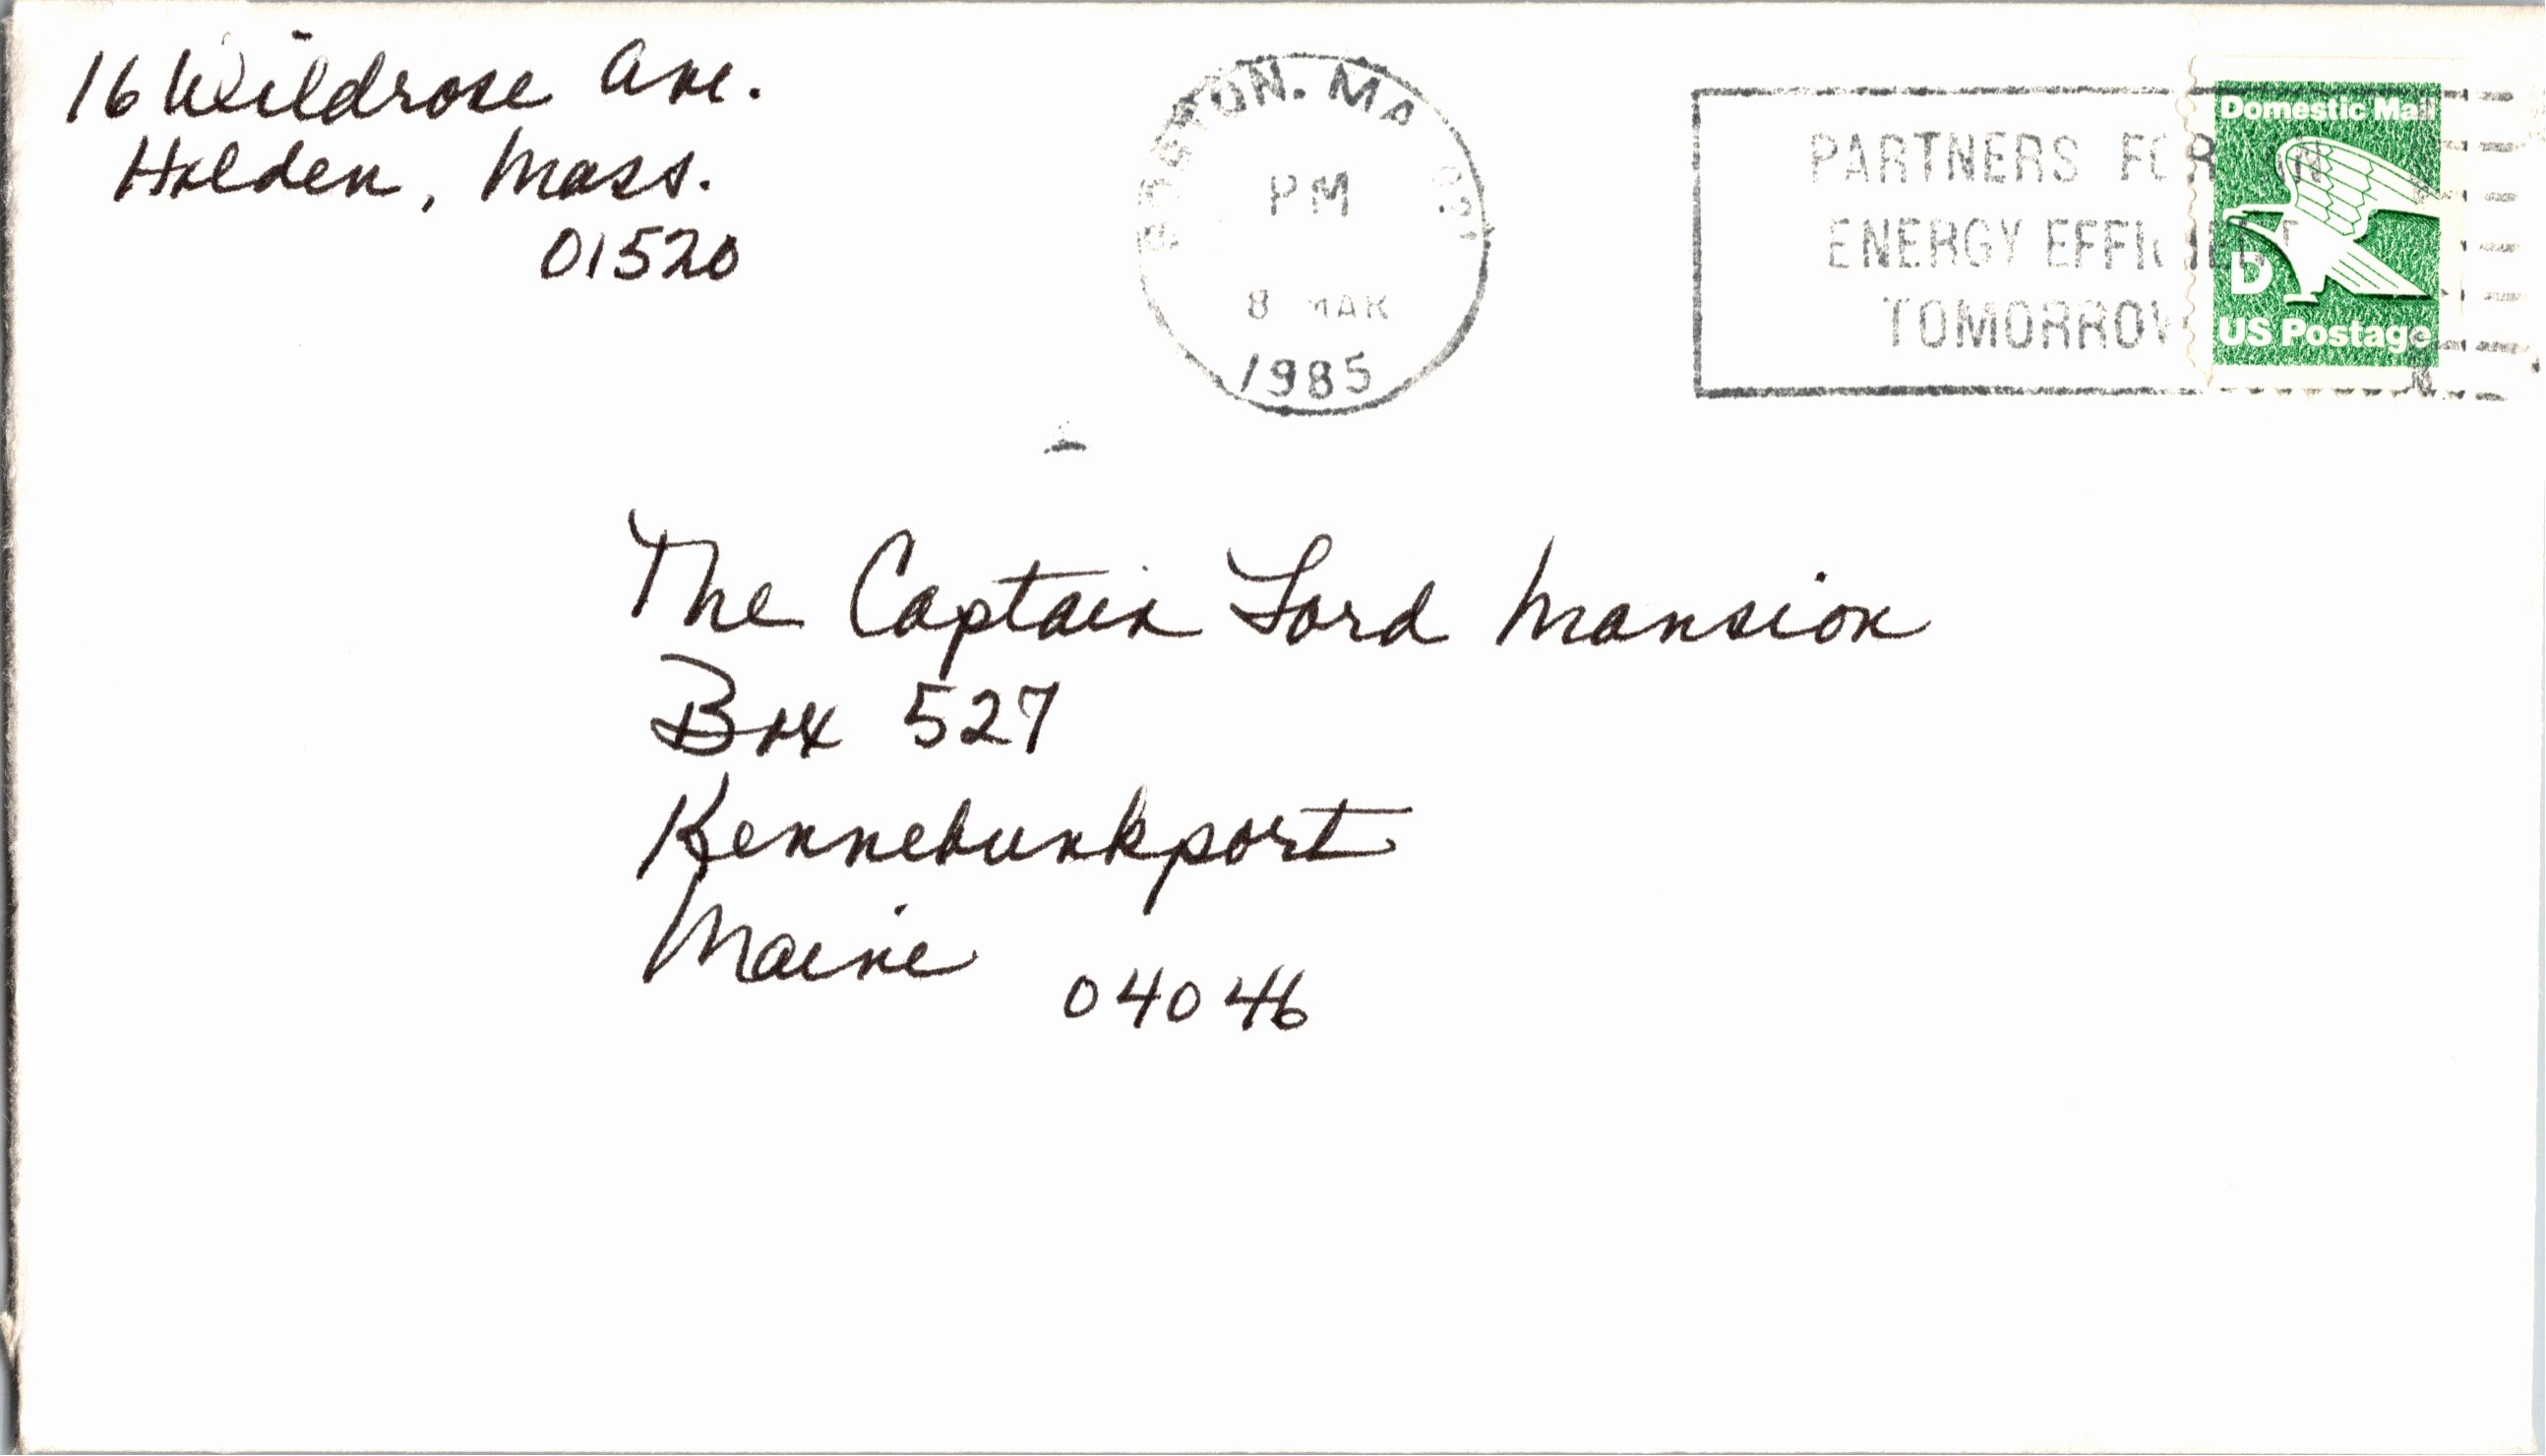 16 Wildrose Ave.
Holden, Mass.
01520
BOSTON, MA
PM
8 MAR
1985
PARTNERS FOR AN
ENERGY EFFICIENT
TOMORROW
Domestic Mail
D
US Postage
The Captain Lord Mansion
Box 527
Kennebunkport
Maine 04046